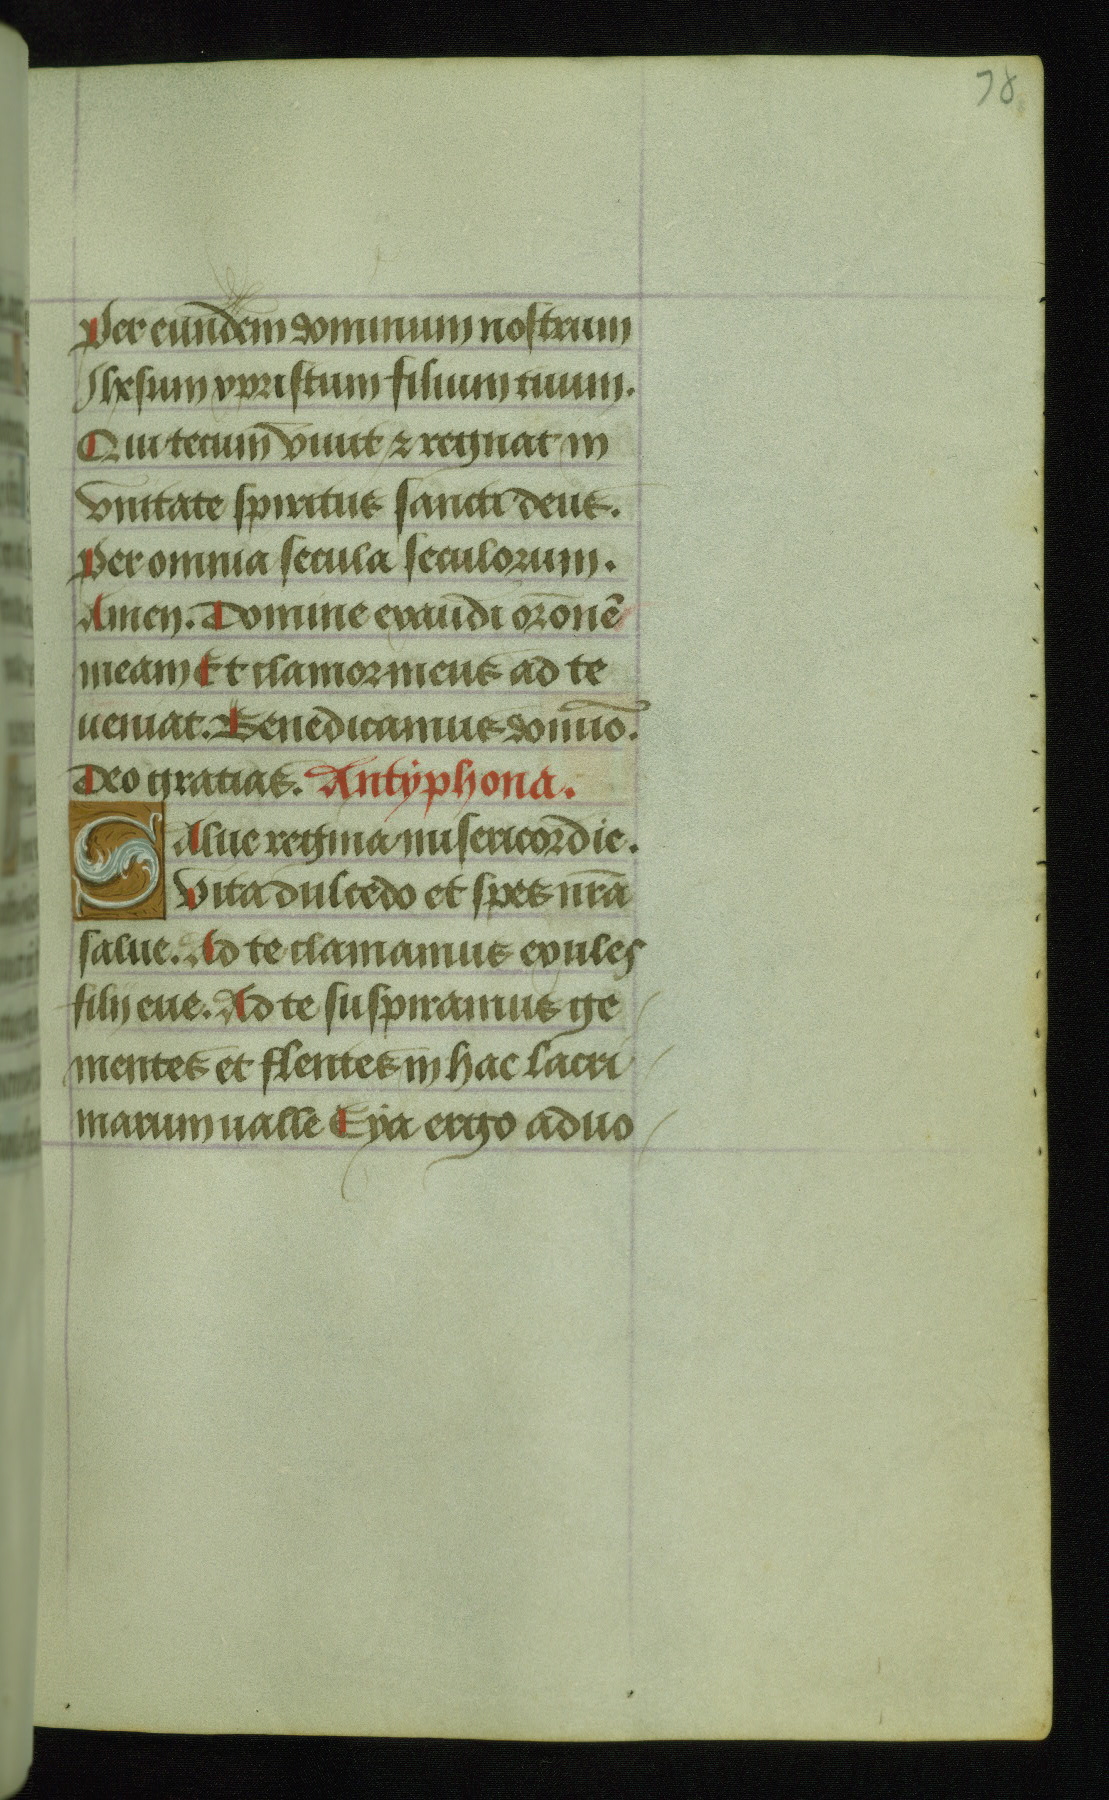 78
Per eundem dominum nostrum
Ihesum xpristum filium tuum.
Qui tecum̄ viuit ⁊ regnat in
vnitate spiritus sancti deus.
Per omnia secula seculorum.
Amen. Domine exaudi orōnē
meam Et clamor meus ad te
ueniat. Benedicamus domīo.
Deo gratias. Antyphona.
Salue regina misericordie.
Vita dulcedo et spes nr̄a
salue. Ad te clamamus exules
filij eue. Ad te suspiramus ge
mentes et flentes in hac lacri
marum ualle Eya ergo aduo